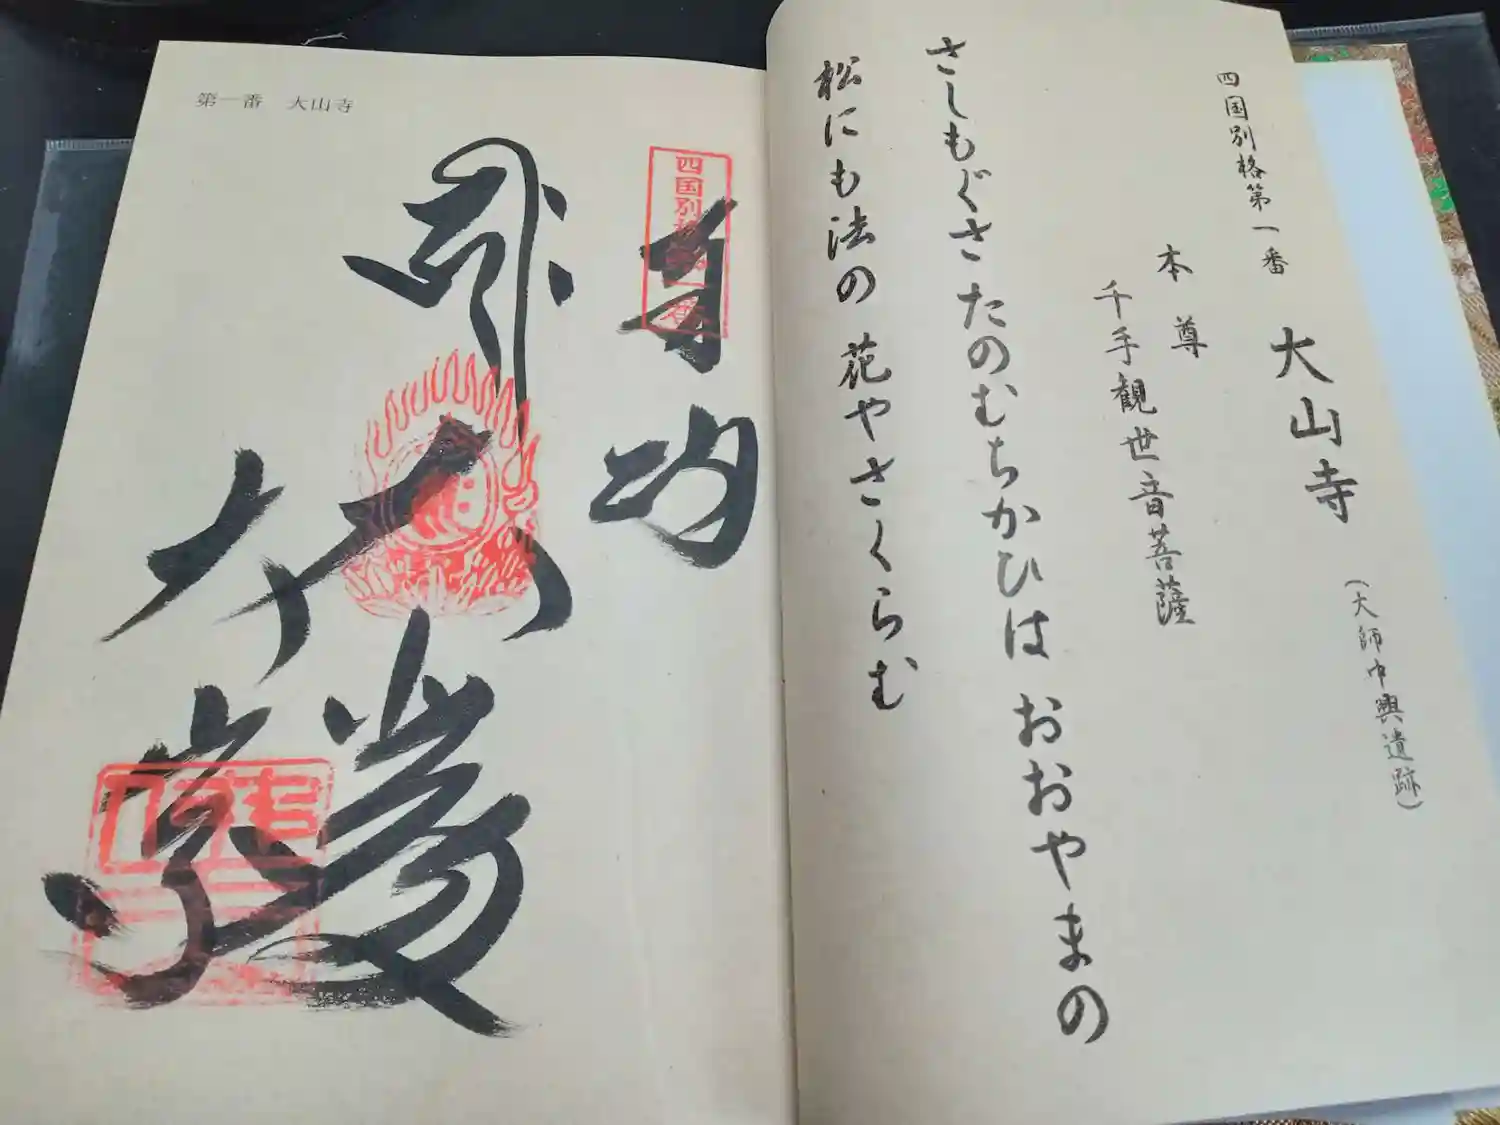 四国別格第一番
大山寺
(大師中興遺跡)
本尊
千手観世音菩薩
さしもぐさ たのむちかひは おおやまの
松にも法の 花やさくらむ
第一番 大山寺
四国別格第一番
大山寺